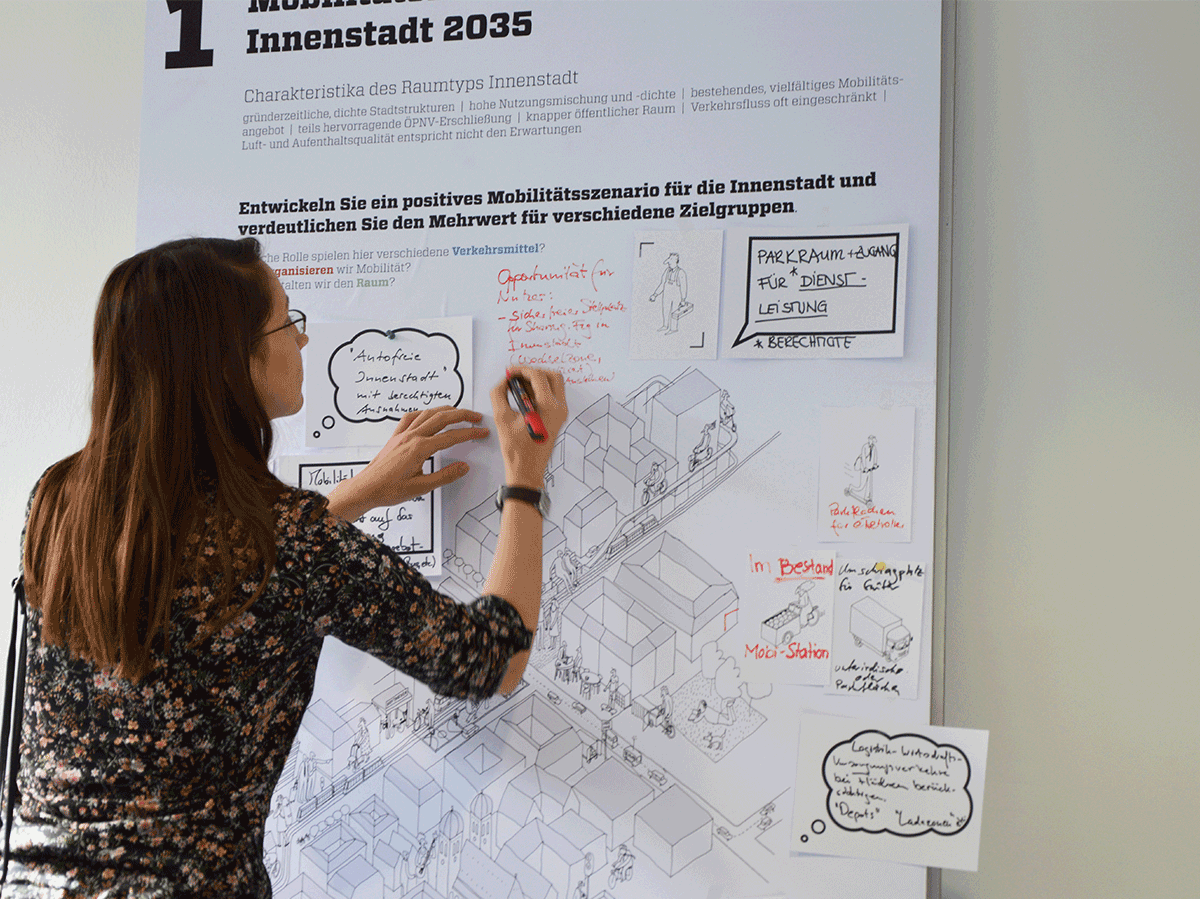 1
Innenstadt 2035
Charakteristika des Raumtyps Innenstadt
gründerzeitliche, dichte Stadtstrukturen | hohe Nutzungsmischung und -dichte | bestehendes, vielfältiges Mobilitäts-
angebot | teils hervorragende ÖPNV-Erschließung | knapper öffentlicher Raum | Verkehrsfluss oft eingeschränkt |
Luft- und Aufenthaltsqualität entspricht nicht den Erwartungen
Entwickeln Sie ein positives Mobilitätsszenario für die Innenstadt und
verdeutlichen Sie den Mehrwert für verschiedene Zielgruppen.
Rolle spielen hier verschiedene Verkehrsmittel?
organisieren wir Mobilität?
wir den Raum?
Opportunität für
Nutzer:
- sicher freier Stellplatz
für Sharing-Fzg in
Innenstadt
(Wechselzone,
PARKRAUM + ZUGANG
FÜR * DIENST-
LEISTUNG
* BERECHTIGTE
"Autofreie
Innenstadt"
mit berechtigten
Ausnahmen
auf das
Parkflächen
für e-Petroller
Im Bestand
Mobi-Station
Umschlagplatz
für Güter
unterirdische
oder
Parkfläche
Logistik-Wirtschafts-
Versorgungsverkehre
bei Händlern berück-
sichtigen.
"Depots" "Ladezonen"